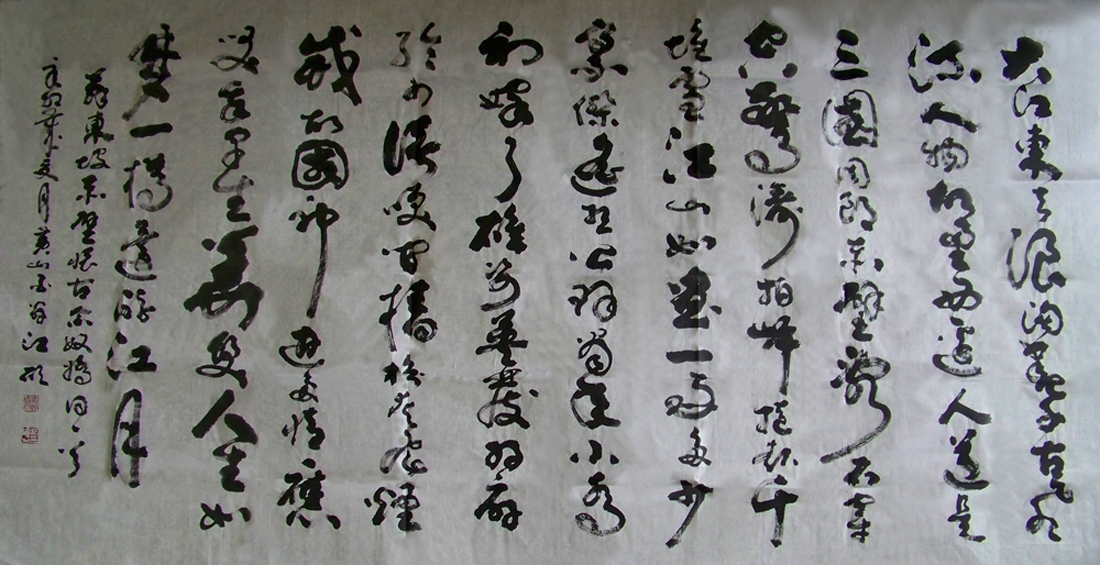 大江東去浪淘盡千古風
流人物故壘西邊人道是
三國周郎赤壁亂石穿
空驚濤拍岸捲起千
堆雪江山如畫一時多少
豪傑遙想公瑾當年小喬
初嫁了雄姿英發羽扇
綸巾談笑間檣櫓灰飛煙
滅故國神遊多情應
笑我早生華髮人生如
夢一樽還酹江月
蘇東坡赤壁懷古念奴嬌詞一首
月黄山江